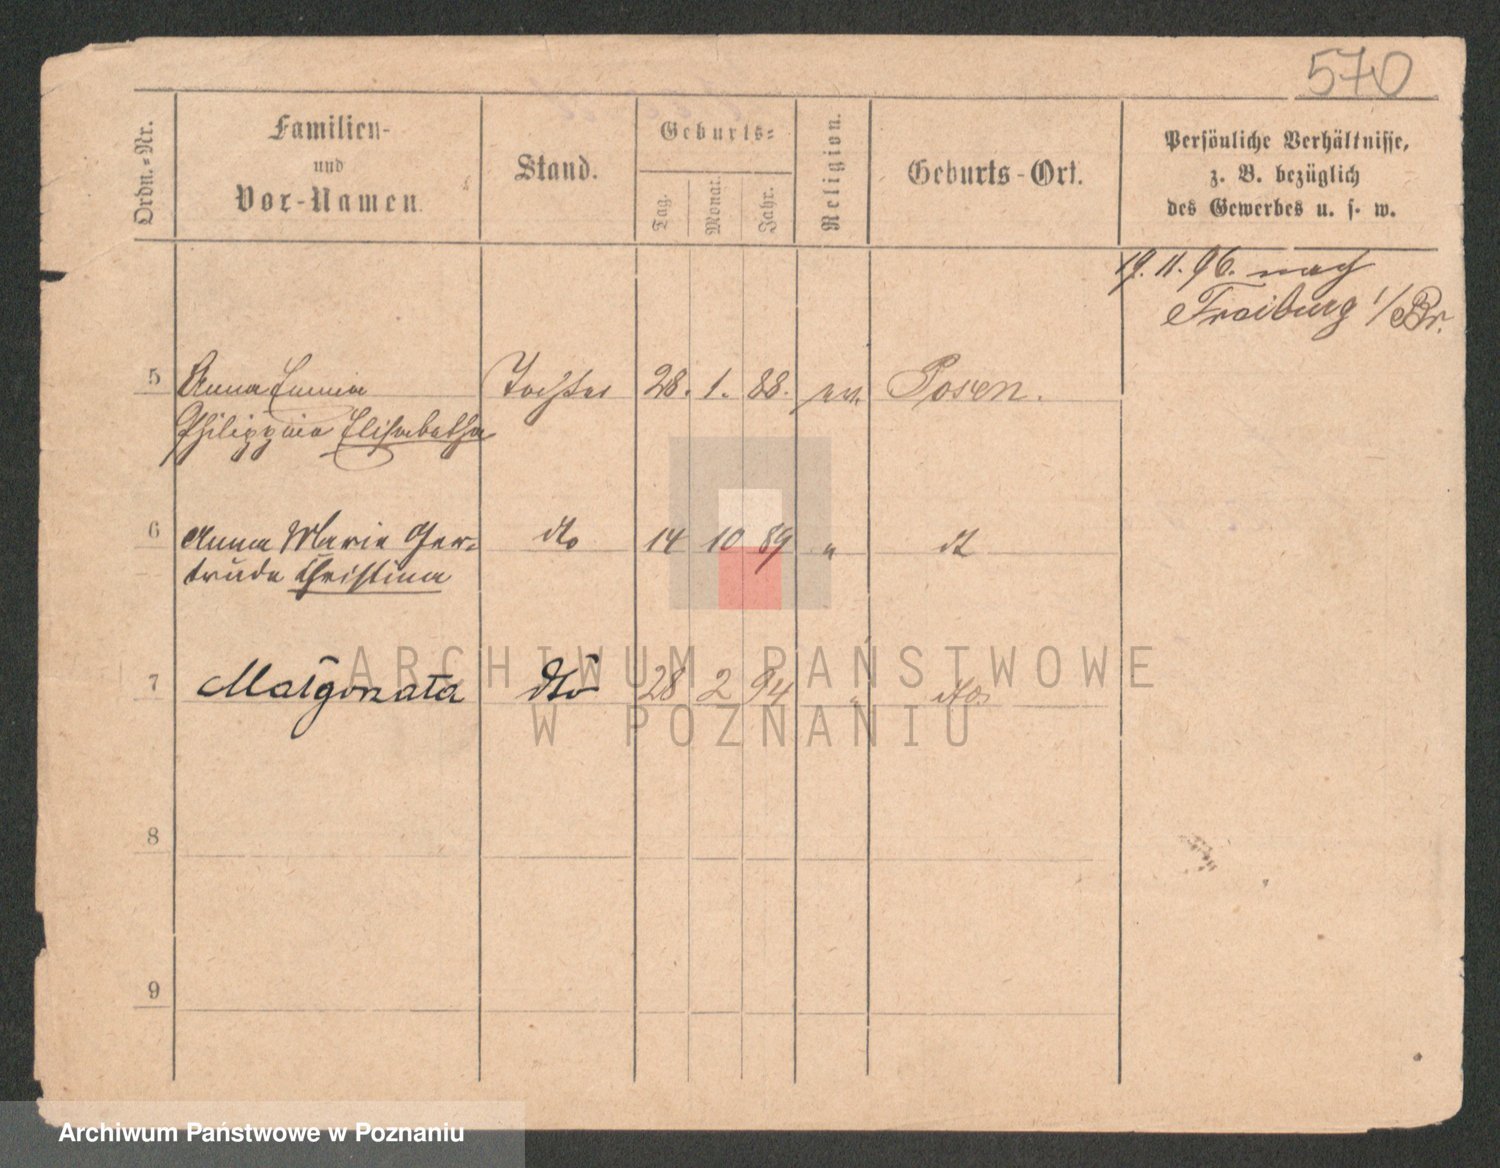 570
Ordn.-Nr.
Familien-
und
Vor-Namen.
Stand.
Geburts-
Tag.
Monat.
Jahr.
Religion.
Geburts-Ort.
Persönliche Verhältnisse,
z. B. bezüglich
des Gewerbes u. s. w.
19. 11. 96. nach
Freiburg i/Br.
5 Anna Emma Tochter 28. 1. 88. ev. Posen.
Philippine Elisabetha
6 Anna Marie Ger- dto 14 10 89 " dt
trude Christina
7 Małgorzata dto 28 2 94 " dto
8
9
ARCHIWUM PAŃSTWOWE
W POZNANIU
Archiwum Państwowe w Poznaniu